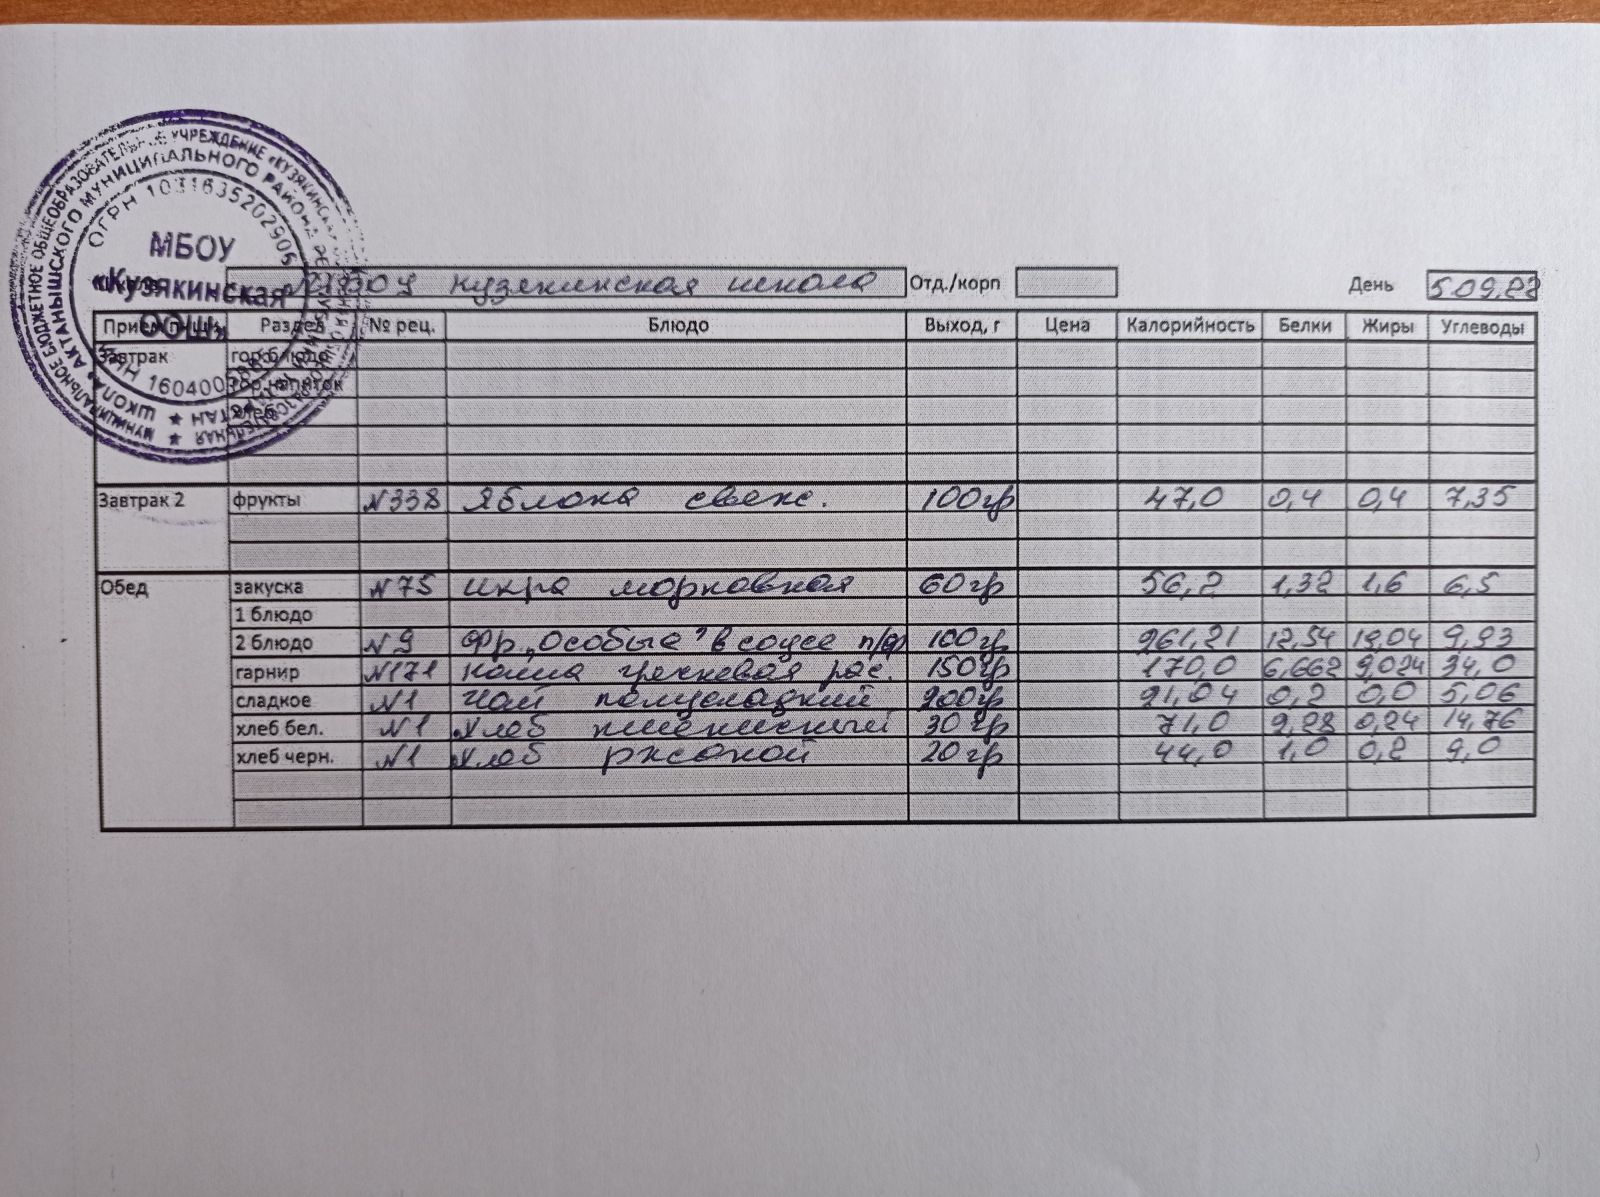 МУНИЦИПАЛЬНОЕ БЮДЖЕТНОЕ ОБЩЕОБРАЗОВАТЕЛЬНОЕ УЧРЕЖДЕНИЕ «КУЗЯКИНСКАЯ
ШКОЛА» АКТАНЫШСКОГО МУНИЦИПАЛЬНОГО РАЙОНА
ОГРН 1031635202905
МБОУ
«Кузякинская
ООШ»
МБОУ Кузякинская школа Отд./корп День 5.09.22
Прием пищи Раздел № рец. Блюдо Выход, г Цена Калорийность Белки Жиры Углеводы
Завтрак гор.блюдо
гор.напиток
хлеб
Завтрак 2 фрукты №338 Яблока свеж. 100гр 47,0 0,4 0,4 7,35
Обед закуска №75 икра морковная 60гр 56,2 1,32 1,6 6,5
1 блюдо
2 блюдо №9 Фр. „Особые" в соусе п/ф 100гр 261,21 12,54 19,04 9,93
гарнир №171 Каша гречневая рас. 150гр 170,0 6,662 9,024 34,0
сладкое №1 Чай полусладкий 200гр 21,04 0,2 0,0 5,06
хлеб бел. №1 Хлеб пшеничный 30гр 71,0 2,28 0,24 14,76
хлеб черн. №1 Хлеб ржаной 20гр 44,0 1,0 0,2 9,0